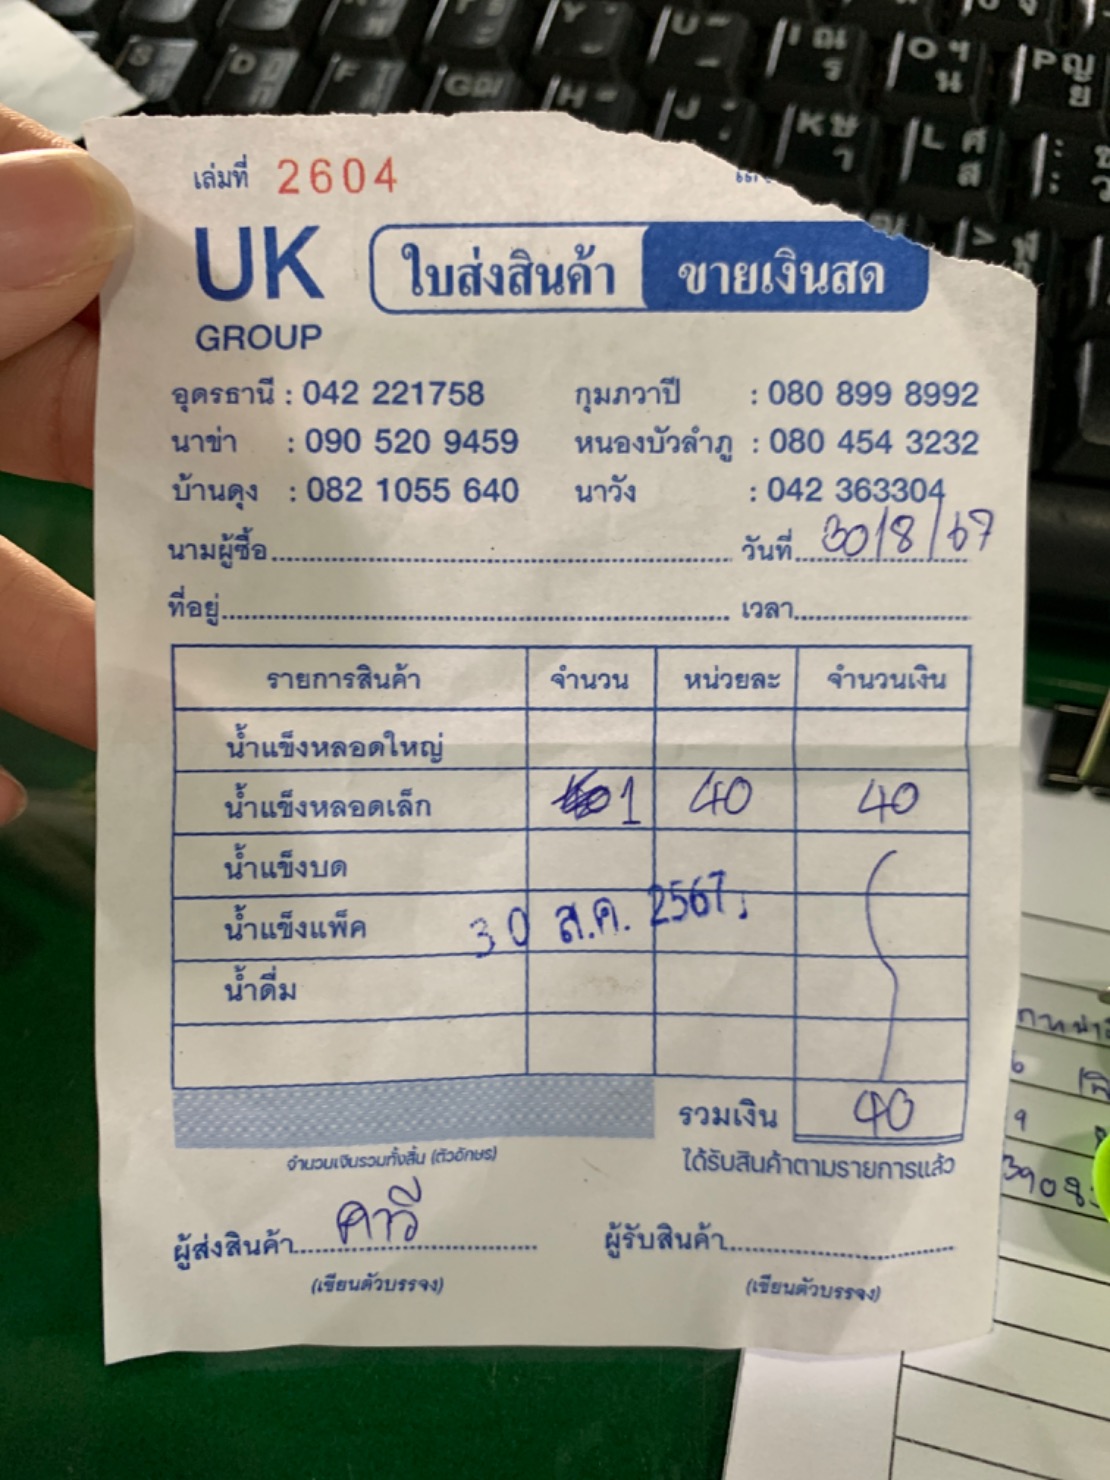 เล่มที่ 2604
UK
GROUP
ใบส่งสินค้า ขายเงินสด
อุดรธานี : 042 221758 กุมภวาปี : 080 899 8992
นาข่า : 090 520 9459 หนองบัวลำภู : 080 454 3232
บ้านดุง : 082 1055 640 นาวัง : 042 363304
นามผู้ซื้อ วันที่ 30/8/67
ที่อยู่ เวลา
รายการสินค้า จำนวน หน่วยละ จำนวนเงิน
น้ำแข็งหลอดใหญ่
น้ำแข็งหลอดเล็ก 1 40 40
น้ำแข็งบด
น้ำแข็งแพ็ค 30 ส.ค. 2567
น้ำดื่ม
รวมเงิน 40
จำนวนเงินรวมทั้งสิ้น (ตัวอักษร) ได้รับสินค้าตามรายการแล้ว
ผู้ส่งสินค้า คาวี ผู้รับสินค้า
(เขียนตัวบรรจง) (เขียนตัวบรรจง)